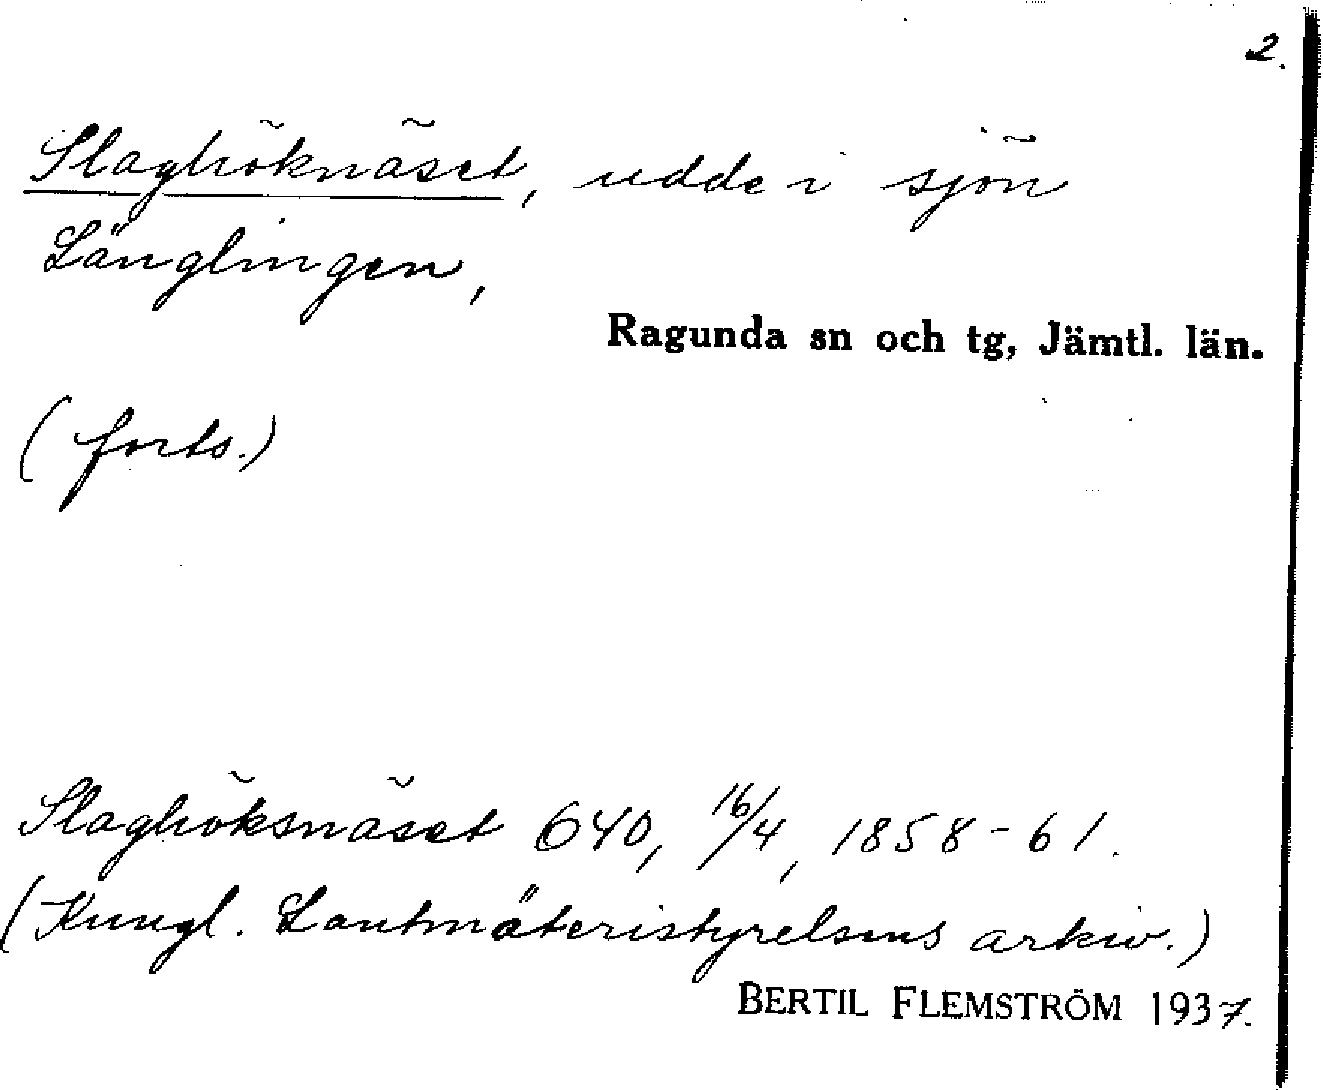 2.
Slaghöknäset, udde i sjön
Länglingen,
Ragunda sn och tg, Jämtl. län.
(forts.)
Slaghöksnäset 640, 16/4, 1858-61.
(Kungl. Lantmäteristyrelsens arkiv.)
BERTIL FLEMSTRÖM 1937.